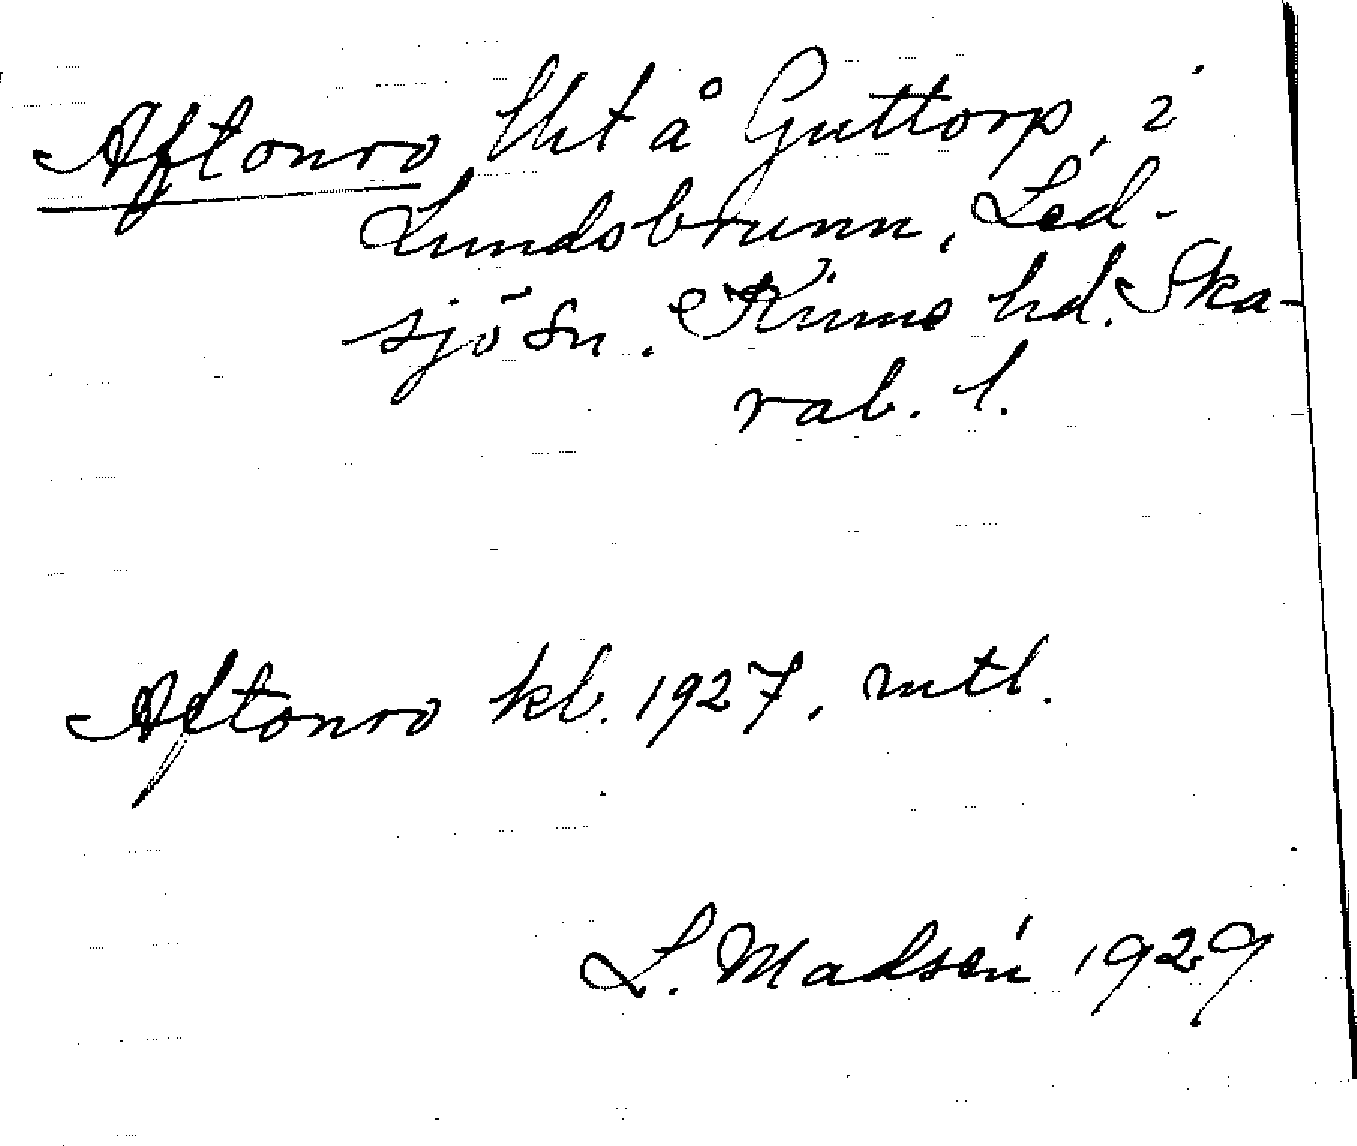 Aftonro lht å Guttorp, i
Lundsbrunn, Led-
sjö sn. Kinne hd. Ska-
rab. l.
Aftonro kb. 1927, mtl.
L. Madsén 1929